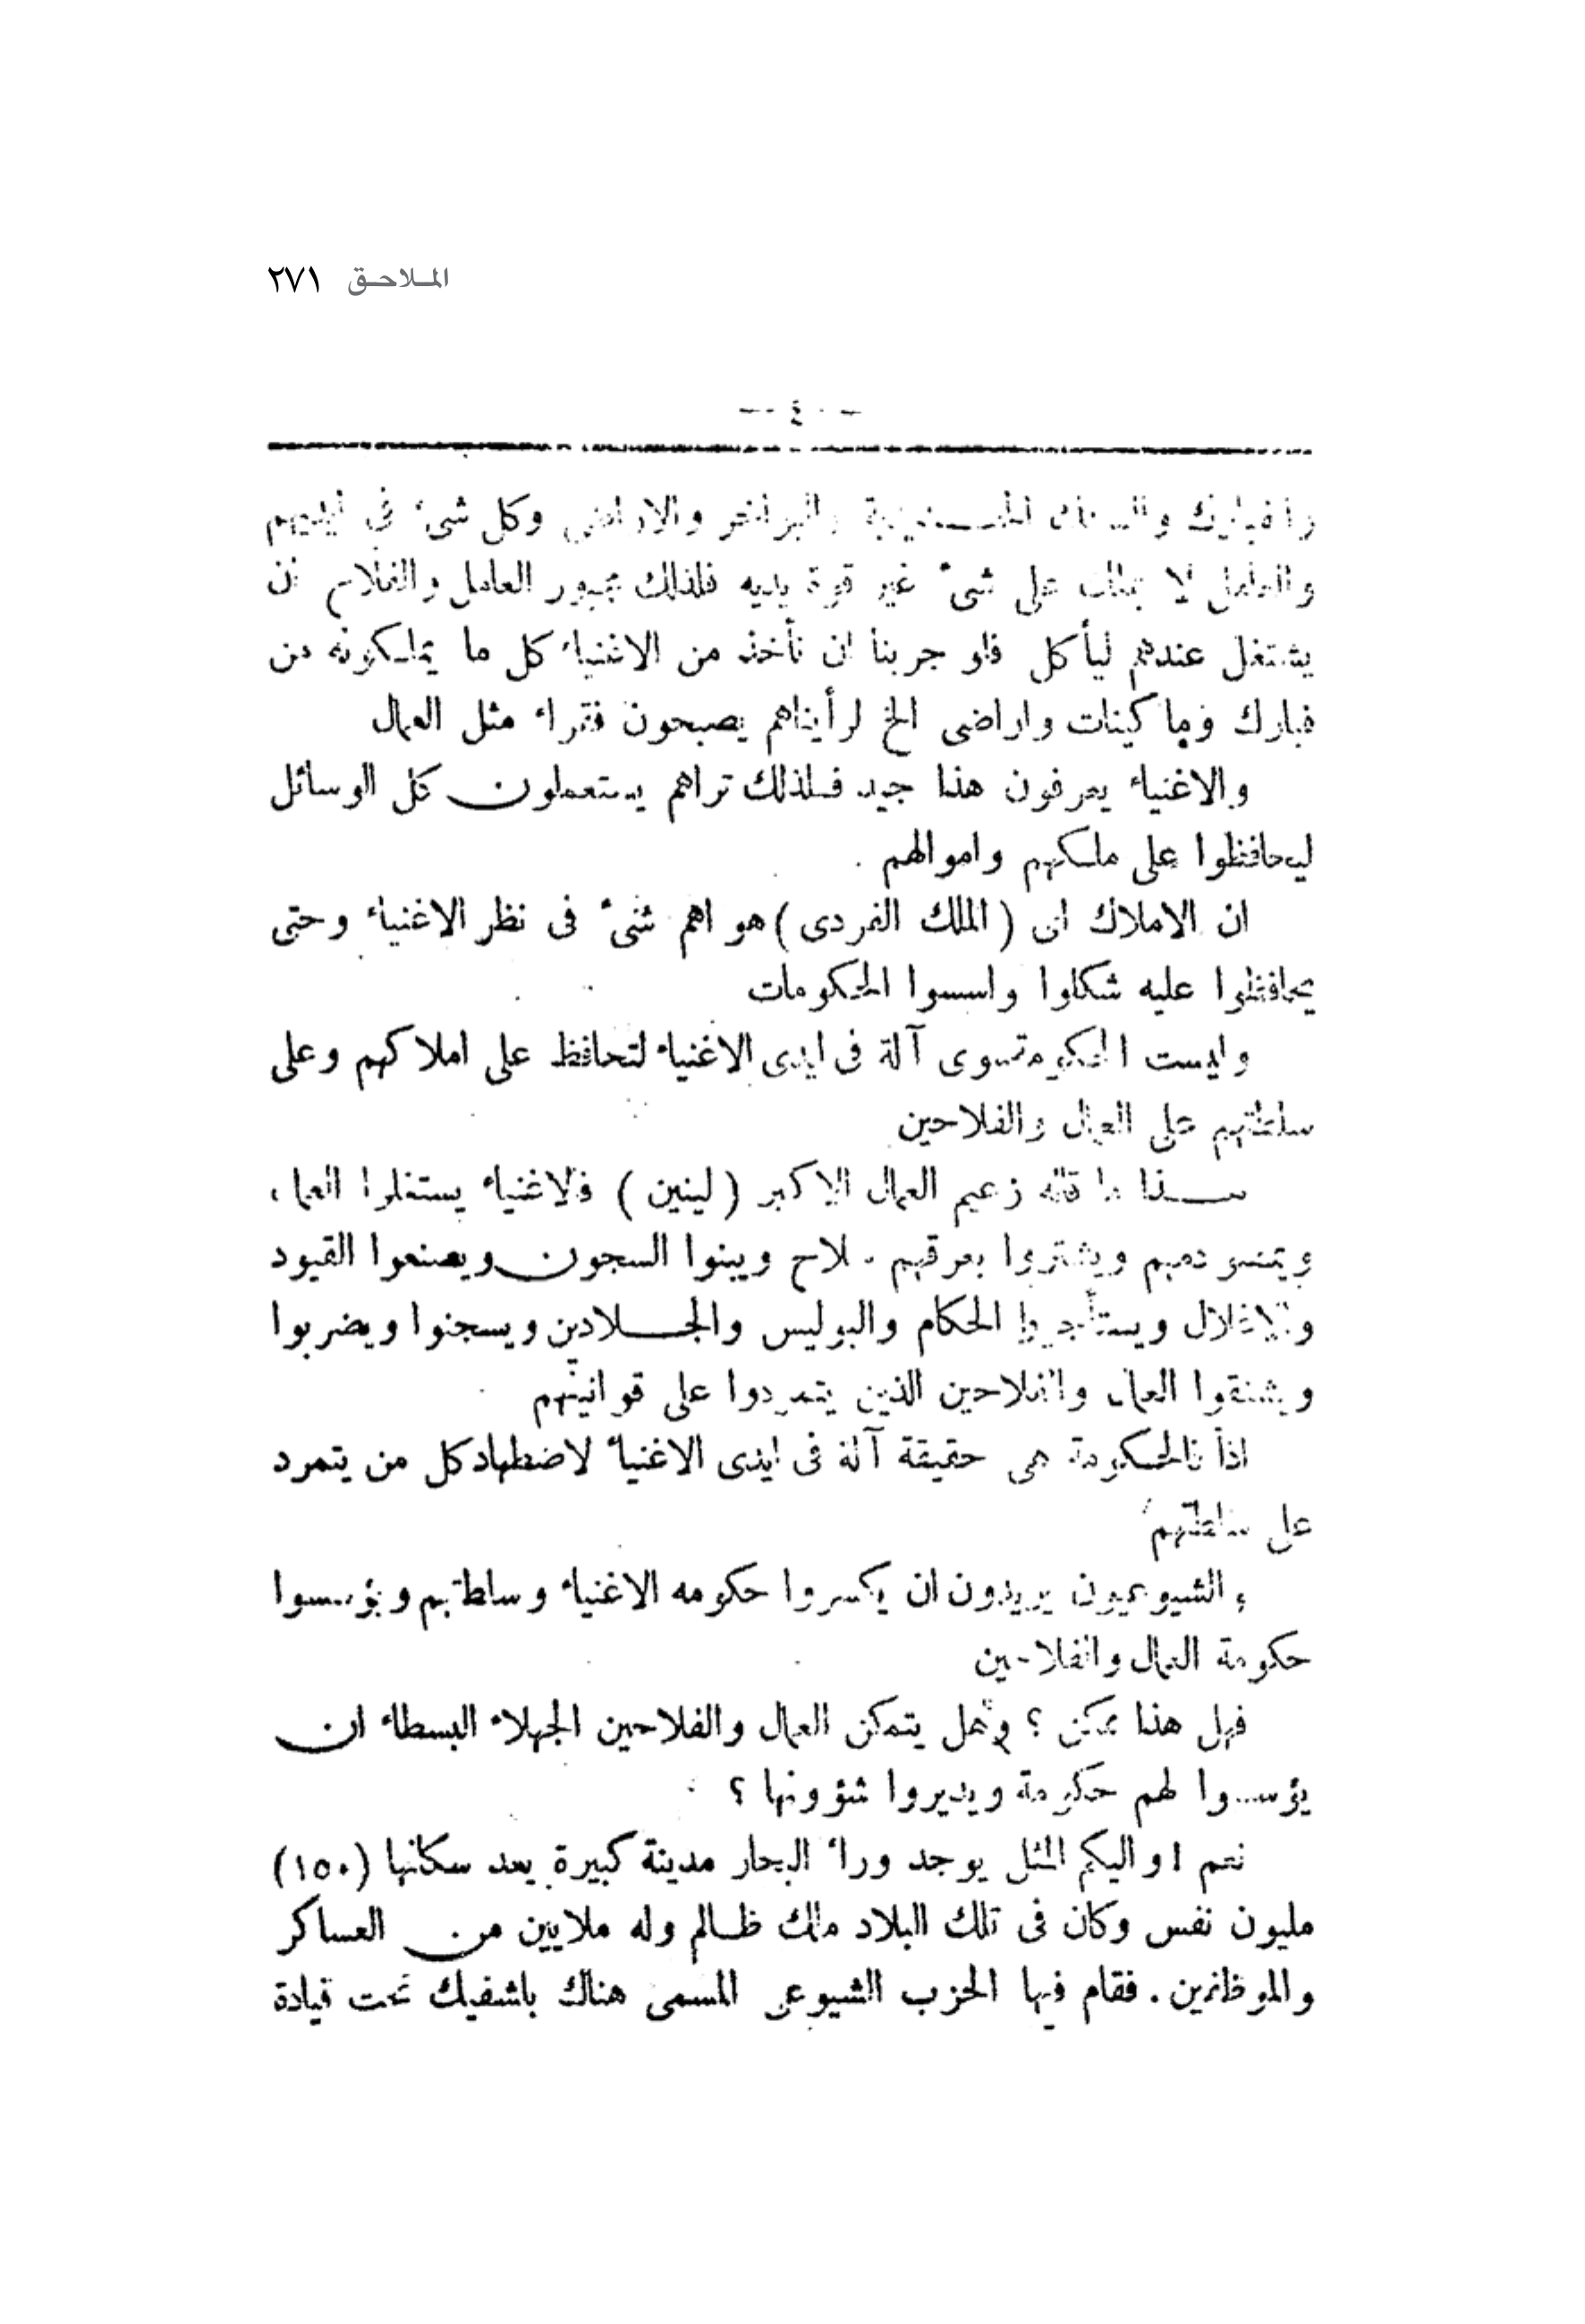 الملاحق ٢٧١
— ٤ —
والسكك والبواخر والاراضي وكل شيء في
والعامل لا يملك على شيء غير قوة يديه فلذلك مجبور العامل والفلاح ان
يشتغل عندهم ليأكل فلو جربنا ان نأخذ من الاغنياء كل ما يملكونه من
فبارك وماكينات واراضى الخ لرأيناهم يصبحون فقراء مثل العمال
والاغنياء يعرفون هذا جيد فلذلك تراهم يستعملون كل الوسائل
ليحافظوا على ملكهم واموالهم .
ان الاملاك اى ( الملك الفردى ) هو اهم شىء فى نظر الاغنياء وحتى
يحافظوا عليه شكلوا واسسوا الحكومات
وليست الحكومة سوى آلة فى ايدى الاغنياء لتحافظ على املاكهم وعلى
سلطتهم على العمال والفلاحين
هذا ما قاله زعيم العمال الاكبر ( لينين ) فالاغنياء يستغلوا العمال
ويمتصو دمهم ويشتروا بعرقهم سلاح ويبنوا السجون ويصنعوا القيود
والاغلال ويستأجروا الحكام والبوليس والجلادين ويسجنوا ويضربوا
ويشنقوا العمال والفلاحين الذين يتمردوا على قوانينهم
اذاً فالحكومة هى حقيقة آلة فى ايدى الاغنياء لاضطهاد كل من يتمرد
على سلطتهم
والشيوعيون يريدون ان يكسروا حكومه الاغنياء وسلطتهم ويؤسسوا
حكومة العمال والفلاحين
فهل هذا ممكن ؟ وهل يتمكن العمال والفلاحين الجهلاء البسطاء ان
يؤسسوا لهم حكومة ويديروا شؤونها ؟
نعم ! واليكم المثل يوجد وراء البحار مدينة كبيرة يعد سكانها (١٥٠)
مليون نفس وكان فى تلك البلاد ملك ظالم وله ملايين من العساكر
والموظفين . فقام فيها الحزب الشيوعى المسمى هناك باشفيك تحت قيادة